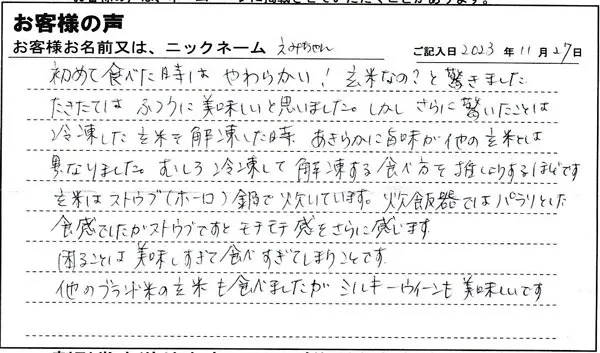 お客様の声
お客様お名前又は、ニックネーム えみちゃん ご記入日 2023 年 11 月 27 日
初めて食べた時は やわらかい! 玄米なの?と驚きました
たきたては ふつうに美味しいと思いました。しかし さらに驚いたことは
冷凍した玄米を解凍した時 あきらかに旨味が他の玄米とは
異なりました。むしろ冷凍して解凍する食べ方を推しりするほどです
玄米はストウブ(ホーロー)鍋で炊いています。炊飯器ではパラリとした
食感でしたがストウブですと モチモチ感をさらに感じます
困ることは美味しすぎて食べすぎてしまうことです
他のブランド米の玄米も食べましたが ミルキークイーンも美味しいです